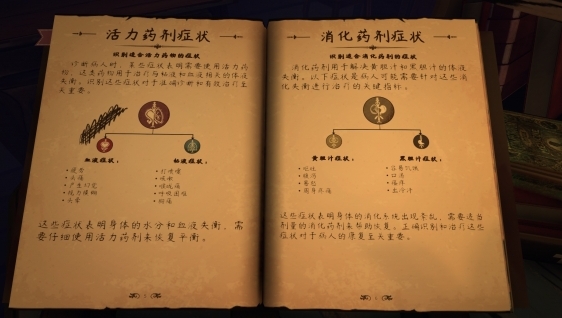 活力药剂症状
识别适合活力药物的症状
诊断病人时，某些症状表明需要使用活力药
剂，这类药物用于治疗与粘液和血液相关的体液
失衡。识别这些症状对于准确诊断和有效治疗至
关重要。
血液症状：
• 疲劳
• 头痛
• 产生幻觉
• 视力模糊
• 头晕
粘液症状：
• 打喷嚏
• 咳嗽
• 喉咙痛
• 呼吸困难
这些症状表明身体的水分和血液失衡，需
要仔细使用活力药剂来恢复平衡。
消化药剂症状
识别适合消化药剂的症状
消化药剂用于解决黄胆汁和黑胆汁的体液
失衡。以下症状是病人可能需要针对这些消
化失衡进行治疗的关键指标。
黄胆汁症状：
• 呕吐
• 腹泻
黑胆汁症状：
• 容易饥饿
• 口渴
• 瘙痒
• 出冷汗
这些症状表明身体的消化系统出现紊乱，需要适当
剂量的消化药剂来帮助恢复。正确识别和治疗这些
症状对于病人的康复至关重要。